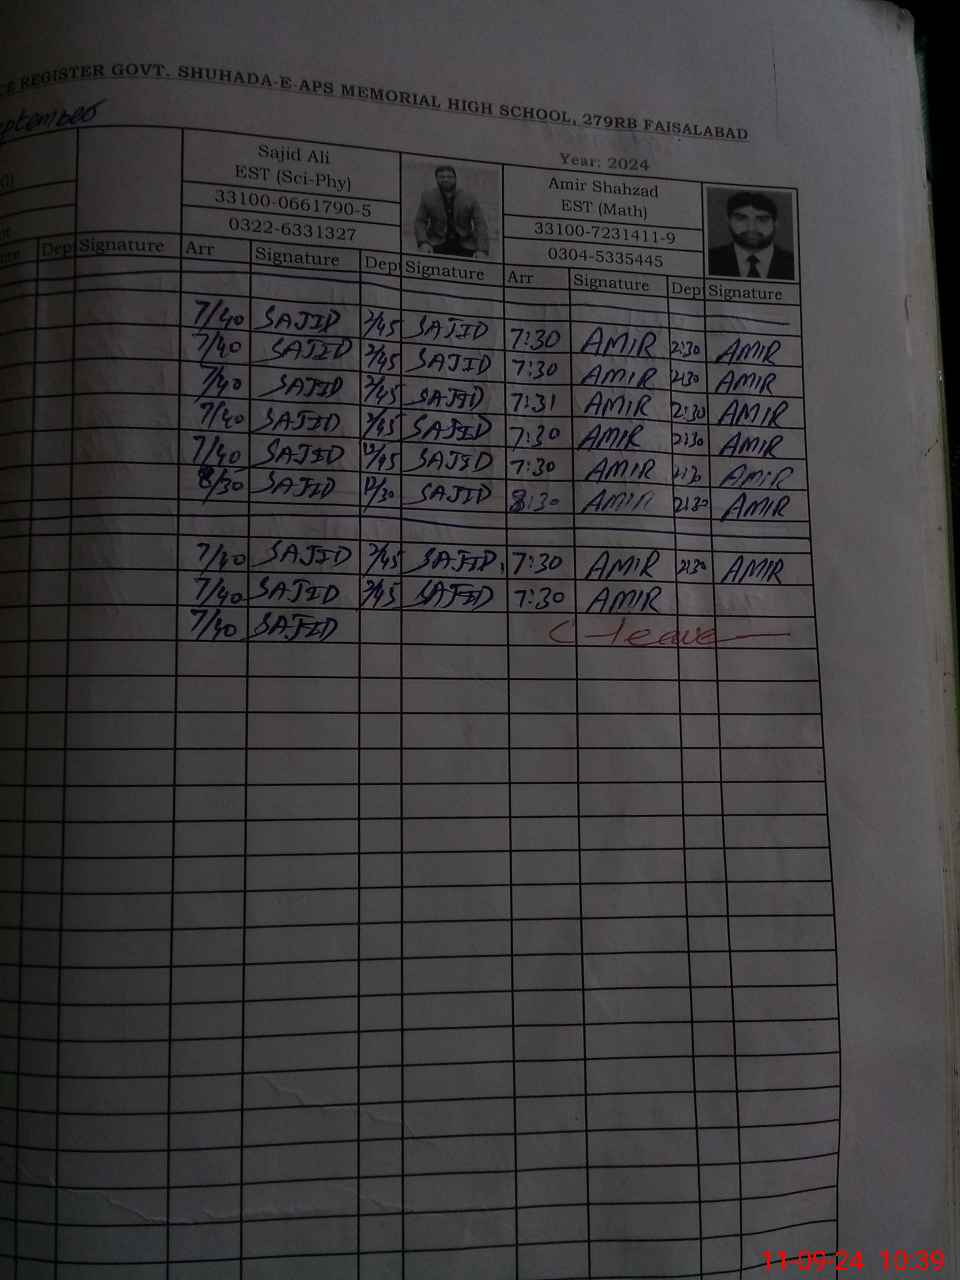 CE REGISTER GOVT. SHUHADA-E-APS MEMORIAL HIGH SCHOOL, 279RB FAISALABAD
Year: 2024
Sajid Ali
EST (Sci-Phy)
33100-0661790-5
0322-6331327
Amir Shahzad
EST (Math)
33100-7231411-9
0304-5335445
Dep Signature Arr Signature Dep Signature Arr Signature Dep Signature
7/40 SAJID 2/45 SAJID 7:30 AMIR 2:30 AMIR
7/40 SAJID 2/45 SAJID 7:30 AMIR 2:30 AMIR
7/40 SAJID 2/45 SAJID 7:31 AMIR 2:30 AMIR
7/40 SAJID 2/45 SAJID 7:30 AMIR 2:30 AMIR
7/40 SAJID 12/45 SAJID 7:30 AMIR AMIR
8/30 SAJID 12/30 SAJID 8:30 AMIR 2:30 AMIR
7/40 SAJID 2/45 SAJID 7:30 AMIR 2:30 AMIR
7/40 SAJID 2/45 SAJID 7:30 AMIR
7/40 SAJID C leave
11-09-24 10:39